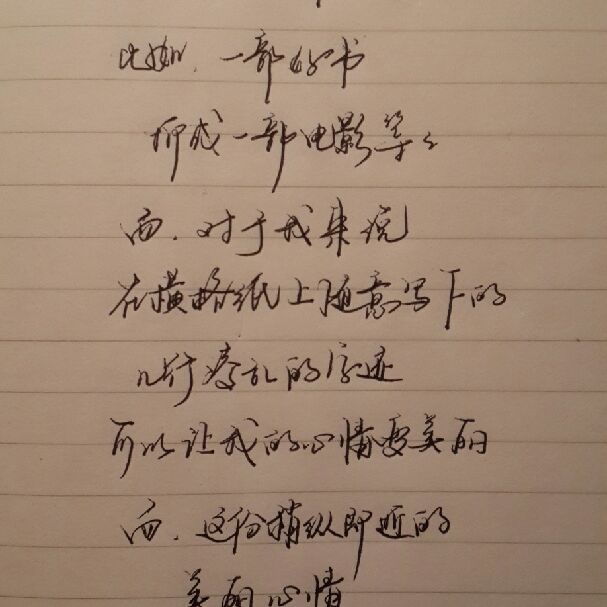 比如、一部好书
抑或一部电影等々
而、对于我来说
在横格纸上随意写下的
几行凌乱的字迹
可以让我的心情变美丽
而、这份稍纵即逝的
美丽心情